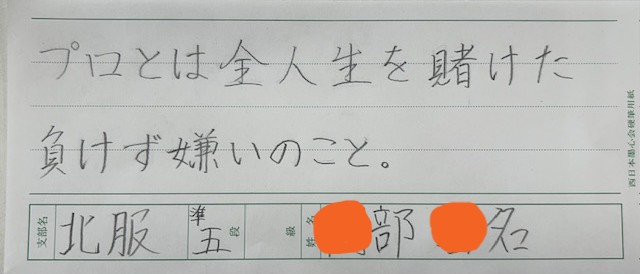 プロとは全人生を賭けた
負けず嫌いのこと。
西日本墨心会硬筆用紙
支部名 北服 準五段 級 姓名 部 名